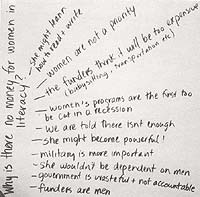 Why is there no money for women in
literacy?
she might learn
how to read + write
women are not a priority
the funders think it will be too expensive
(babysitting + transportation etc)
women's programs are the first too
be cut in a recession
we are told there isnt enough
she might become powerful!
military is more important
she wouldn't be dependent on men
government is wasteful + not accountable
funders are men